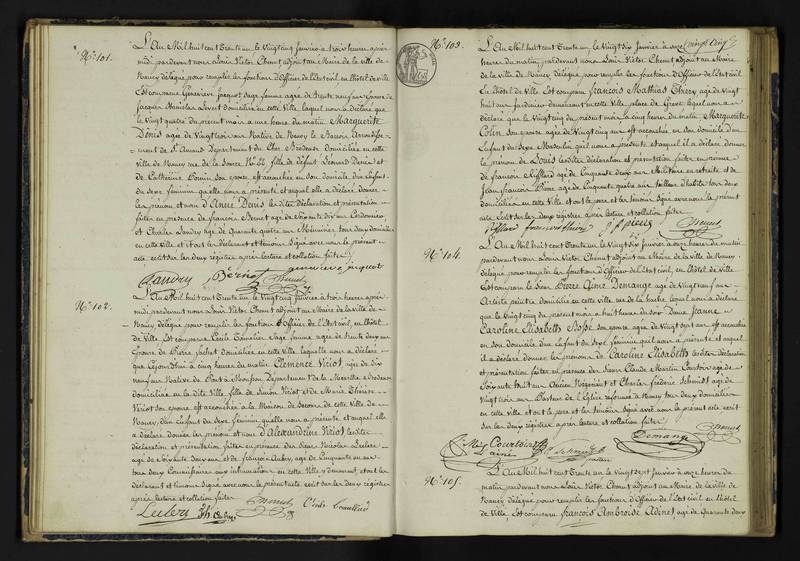 N.° 101.
L'An Mil huit cent Trente un, le Vingt cinq Janvier à trois heures après
midi, pardevant nous Louis Victor Chenut adjoint au Maire de la ville de
Nancy délégué pour remplir les fonctions d'Officier de l'état civil, en l'hôtel de ville
Est comparue Geneviève Jacquot Sage femme agée de trente neuf ans Epouse de
Jacques Stanislas Levert domiciliée en cette Ville, laquelle nous a déclaré que
le Vingt quatre du présent mois à une heure du matin Marguerite
Denis agée de Vingt trois ans Native de
-ment de S.t Amand Département du Cher, Brodeuse domiciliée en cette
Ville de Nancy rue de la Source N.° fille de défunt Léonard Denis et
de Catherine Bonin son épouse est accouchée en son domicile d'un Enfant
du Sexe féminin qu'elle nous a présenté et auquel elle a déclaré donner
les prénom et nom d'Anne Denis les dites déclaration et présentation
faites en présence de François Bernot agé de Soixante dix ans Cordonnier
et Charles Landry agé de Quarante quatre ans Menuisier tous deux domiciliés
en cette ville et ont les déclarant et témoins Signé avec nous le présent
acte écrit sur les deux registres après lecture et collation faites
Landry Bernot genevieve jacquot
Chenut
N.° 102.
L'An Mil huit cent Trente un le Vingt cinq Janvier à trois heures après
midi pardevant nous Louis Victor Chenut adjoint au Maire de la ville de
Nancy délégué pour remplir les fonctions d'Officier de l'état civil, en l'hôtel
de Ville, Est comparue Cécile Cornelier Sage femme agée de trente deux ans
Epouse de Pierre domiciliée en cette Ville laquelle nous a déclaré
que à cinq heures du matin Clémence Viriot agée de dix
neuf ans Native de Pont à Mousson Département de la Meurthe Brodeuse
domiciliée en la dite Ville, fille de Simon Viriot et de Marie Thérèse
Viriot son épouse est accouchée à la Maison de Secours de cette Ville de
Nancy, d'un Enfant du Sexe féminin qu'elle nous a présenté et auquel elle
a déclaré donner les prénom et nom d'Alexandrine Viriot les dites
déclaration et présentation faites en présence des Sieurs Nicolas Leclerc
agé de Soixante Sept ans et de François Aubry agé de Cinquante un ans
tous deux Commissaires aux inhumations en cette Ville y demeurant, et ont les
déclarant et témoins Signé avec nous le présent acte, écrit sur les deux registres
après lecture et collation faites
Leclerc Chenut Cécile
N.° 103.
L'An Mil huit cent Trente un, le Vingt six Janvier à onze (vingt cinq)
heures du matin, pardevant nous Louis Victor Chenut adjoint au Maire
de la Ville de Nancy, délégué pour remplir les fonctions d'Officier de l'état civil
En l'hôtel de Ville Est comparu François Mathias Thiery agé de Vingt
huit ans Jardinier demeurant en cette Ville place de Grève lequel nous a
déclaré que le Vingt cinq du présent mois à cinq heures du matin Marguerite
Colin son épouse agée de Vingt cinq ans est accouchée en son domicile d'un
Enfant du Sexe Masculin qu'il nous a présenté et auquel il a déclaré donner
le prénom de Louis les dites déclaration et présentation faites en présence
de François Rifflard agé de Cinquante deux ans Militaire en retraite et de
Jean François agé de Cinquante quatre ans tailleur d'habits tous deux
domiciliés en cette Ville et ont les père et les témoins Signé avec nous le présent
acte écrit sur les deux registres après lecture et collation faites
Rifflard francois thiery Chenut
N.° 104.
L'An Mil huit cent Trente un le Vingt six Janvier à onze heures du matin
pardevant nous Louis Victor Chenut adjoint au Maire de la Ville de Nancy,
délégué pour remplir les fonctions d'Officier de l'état civil, en l'hôtel de Ville
Est comparu le Sieur Pierre Aimé Demange agé de Vingt neuf ans
Artiste peintre domicilié en cette ville rue de la hache lequel nous a déclaré
que le Vingt cinq du présent mois à huit heures du soir Dame Jeanne
Caroline Elisabeth Bosse son épouse agée de Vingt sept ans est accouchée
en son domicile d'un Enfant du Sexe féminin qu'il nous a présenté et auquel
il a déclaré donner les prénoms de Caroline Elisabeth les dites déclaration
et présentation faites en présence des Sieurs Claude Martin Courtois agé de
Soixante huit ans Ancien Négociant et Charles Frédéric Schmidt agé de
Vingt trois ans Pasteur de l'Eglise réformée à Nancy tous deux domiciliés
en cette Ville et ont le père et les témoins Signé avec nous le présent acte écrit
sur les deux registres après lecture et collation faites
Courtois l'ainé Demange Chenut
pasteur
N.° 105.
L'An Mil huit cent Trente un le Vingt sept Janvier à onze heures du
matin, pardevant nous Louis Victor Chenut adjoint au Maire de la ville de
Nancy délégué pour remplir les fonctions d'Officier de l'état civil en l'hôtel
de Ville, Est comparu François Ambroise Adinet agé de Quarante deux